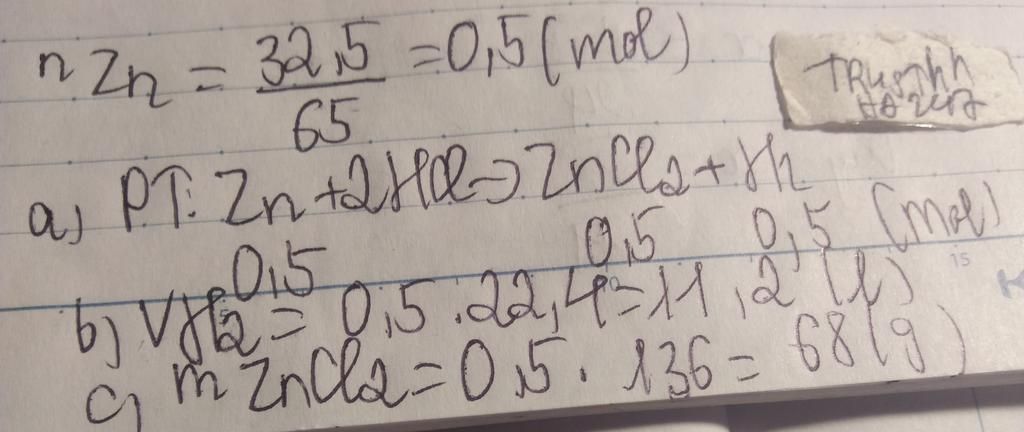 nZn = 32,5/65 = 0,5 (mol)
a) PT: Zn + 2HCl → ZnCl2 + H2
0,5 0,5 0,5 (mol)
b) VH2 = 0,5 . 22,4 = 11,2 (l)
c) mZnCl2 = 0,5 . 136 = 68 (g)
15